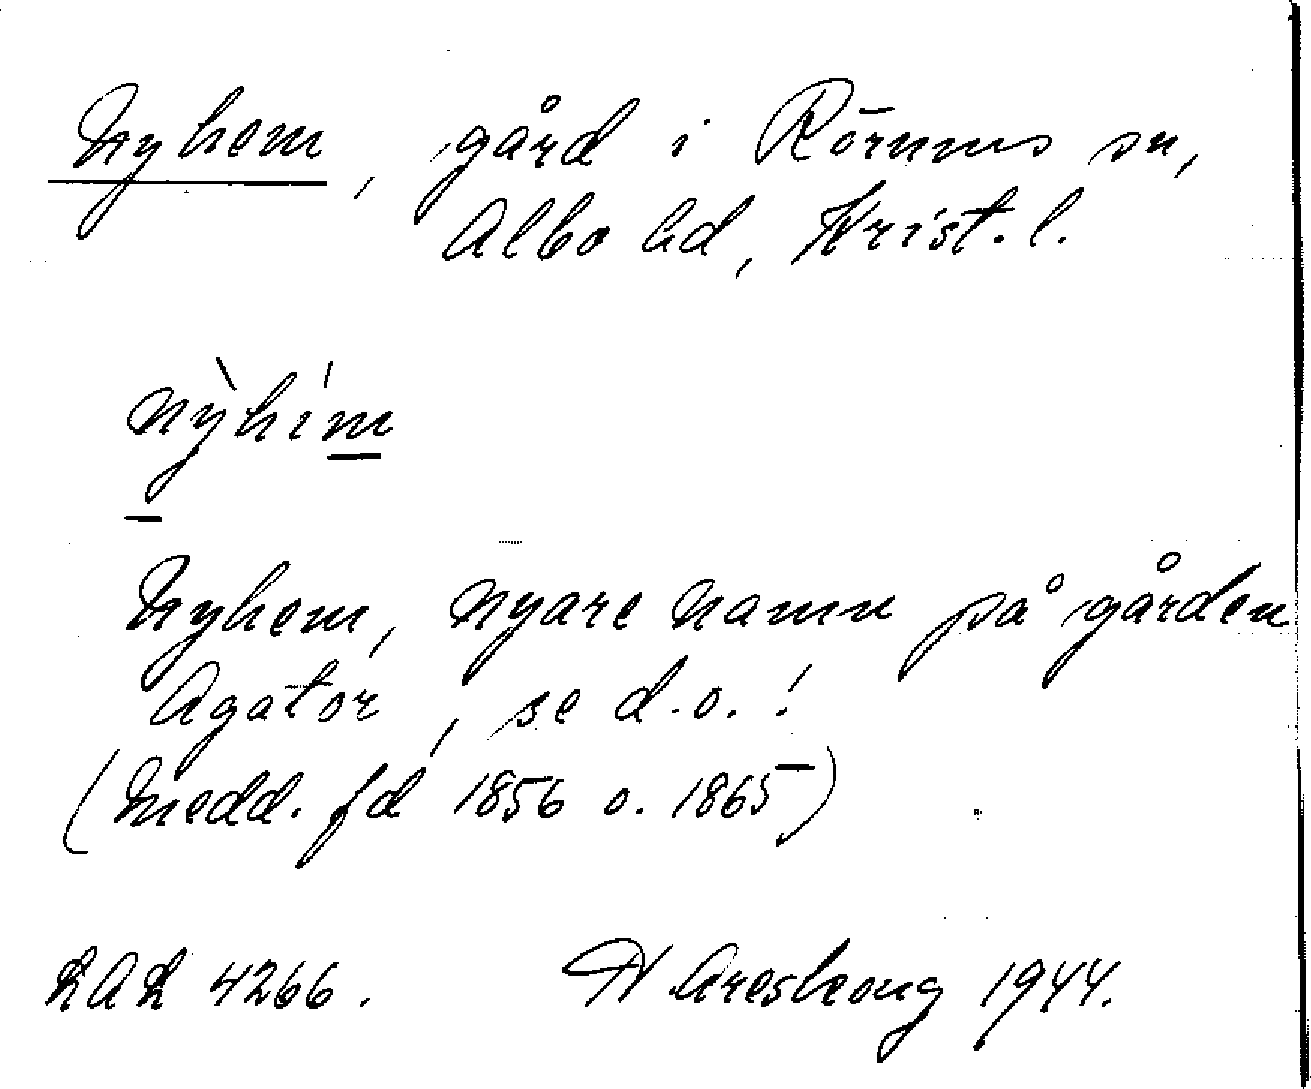 Nyhem, gård i Rörums sn,
Albo hd, Krist. l.
nỳhím
Nyhem, nyare namn på gården
Agator, se d.o.!
(Medd. fd 1856 o. 1865)
LAL 4266. H Areskoug 1944.